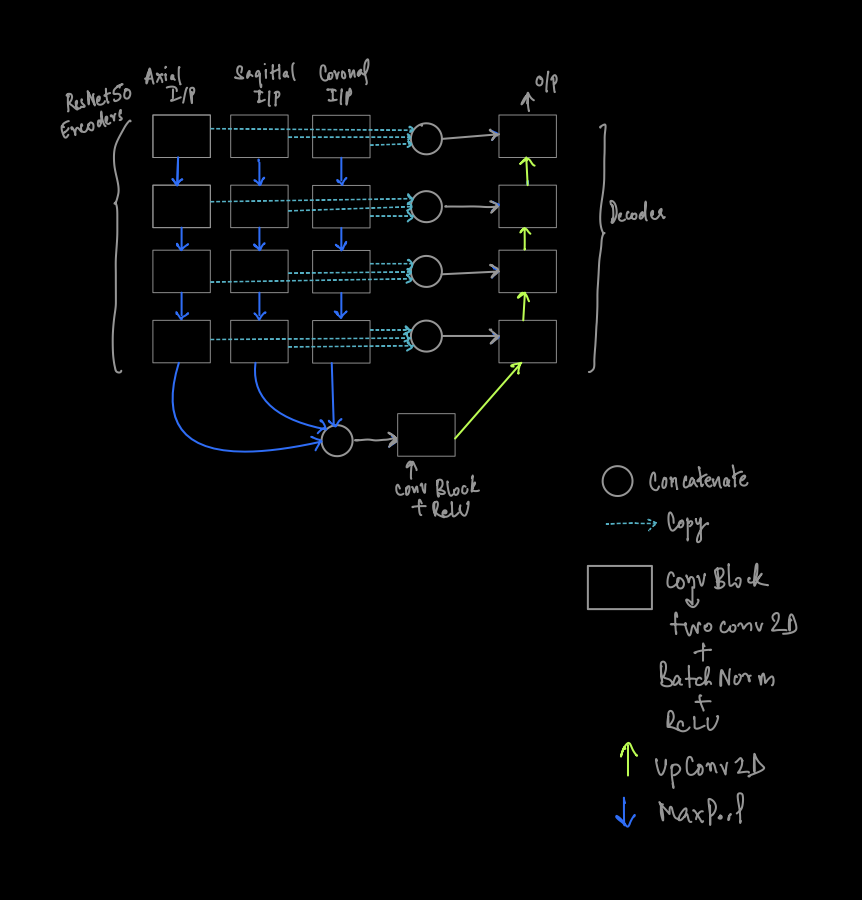 ResNet50
Encoders
Axial
I/P
Sagittal
I/P
Coronal
I/P
O/P
Decoder
Conv Block
+ ReLU
Concatenate
Copy
Conv Block
two conv 2D
+
Batch Norm
+
ReLU
UpConv2D
MaxPool